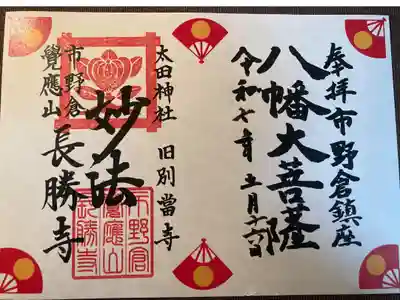 奉拝市野倉鎮座
八幡大菩薩
令和七年
太田神社 旧別當寺
妙法
市野倉
覺應山
長勝寺
市野倉
覺應山
長勝寺